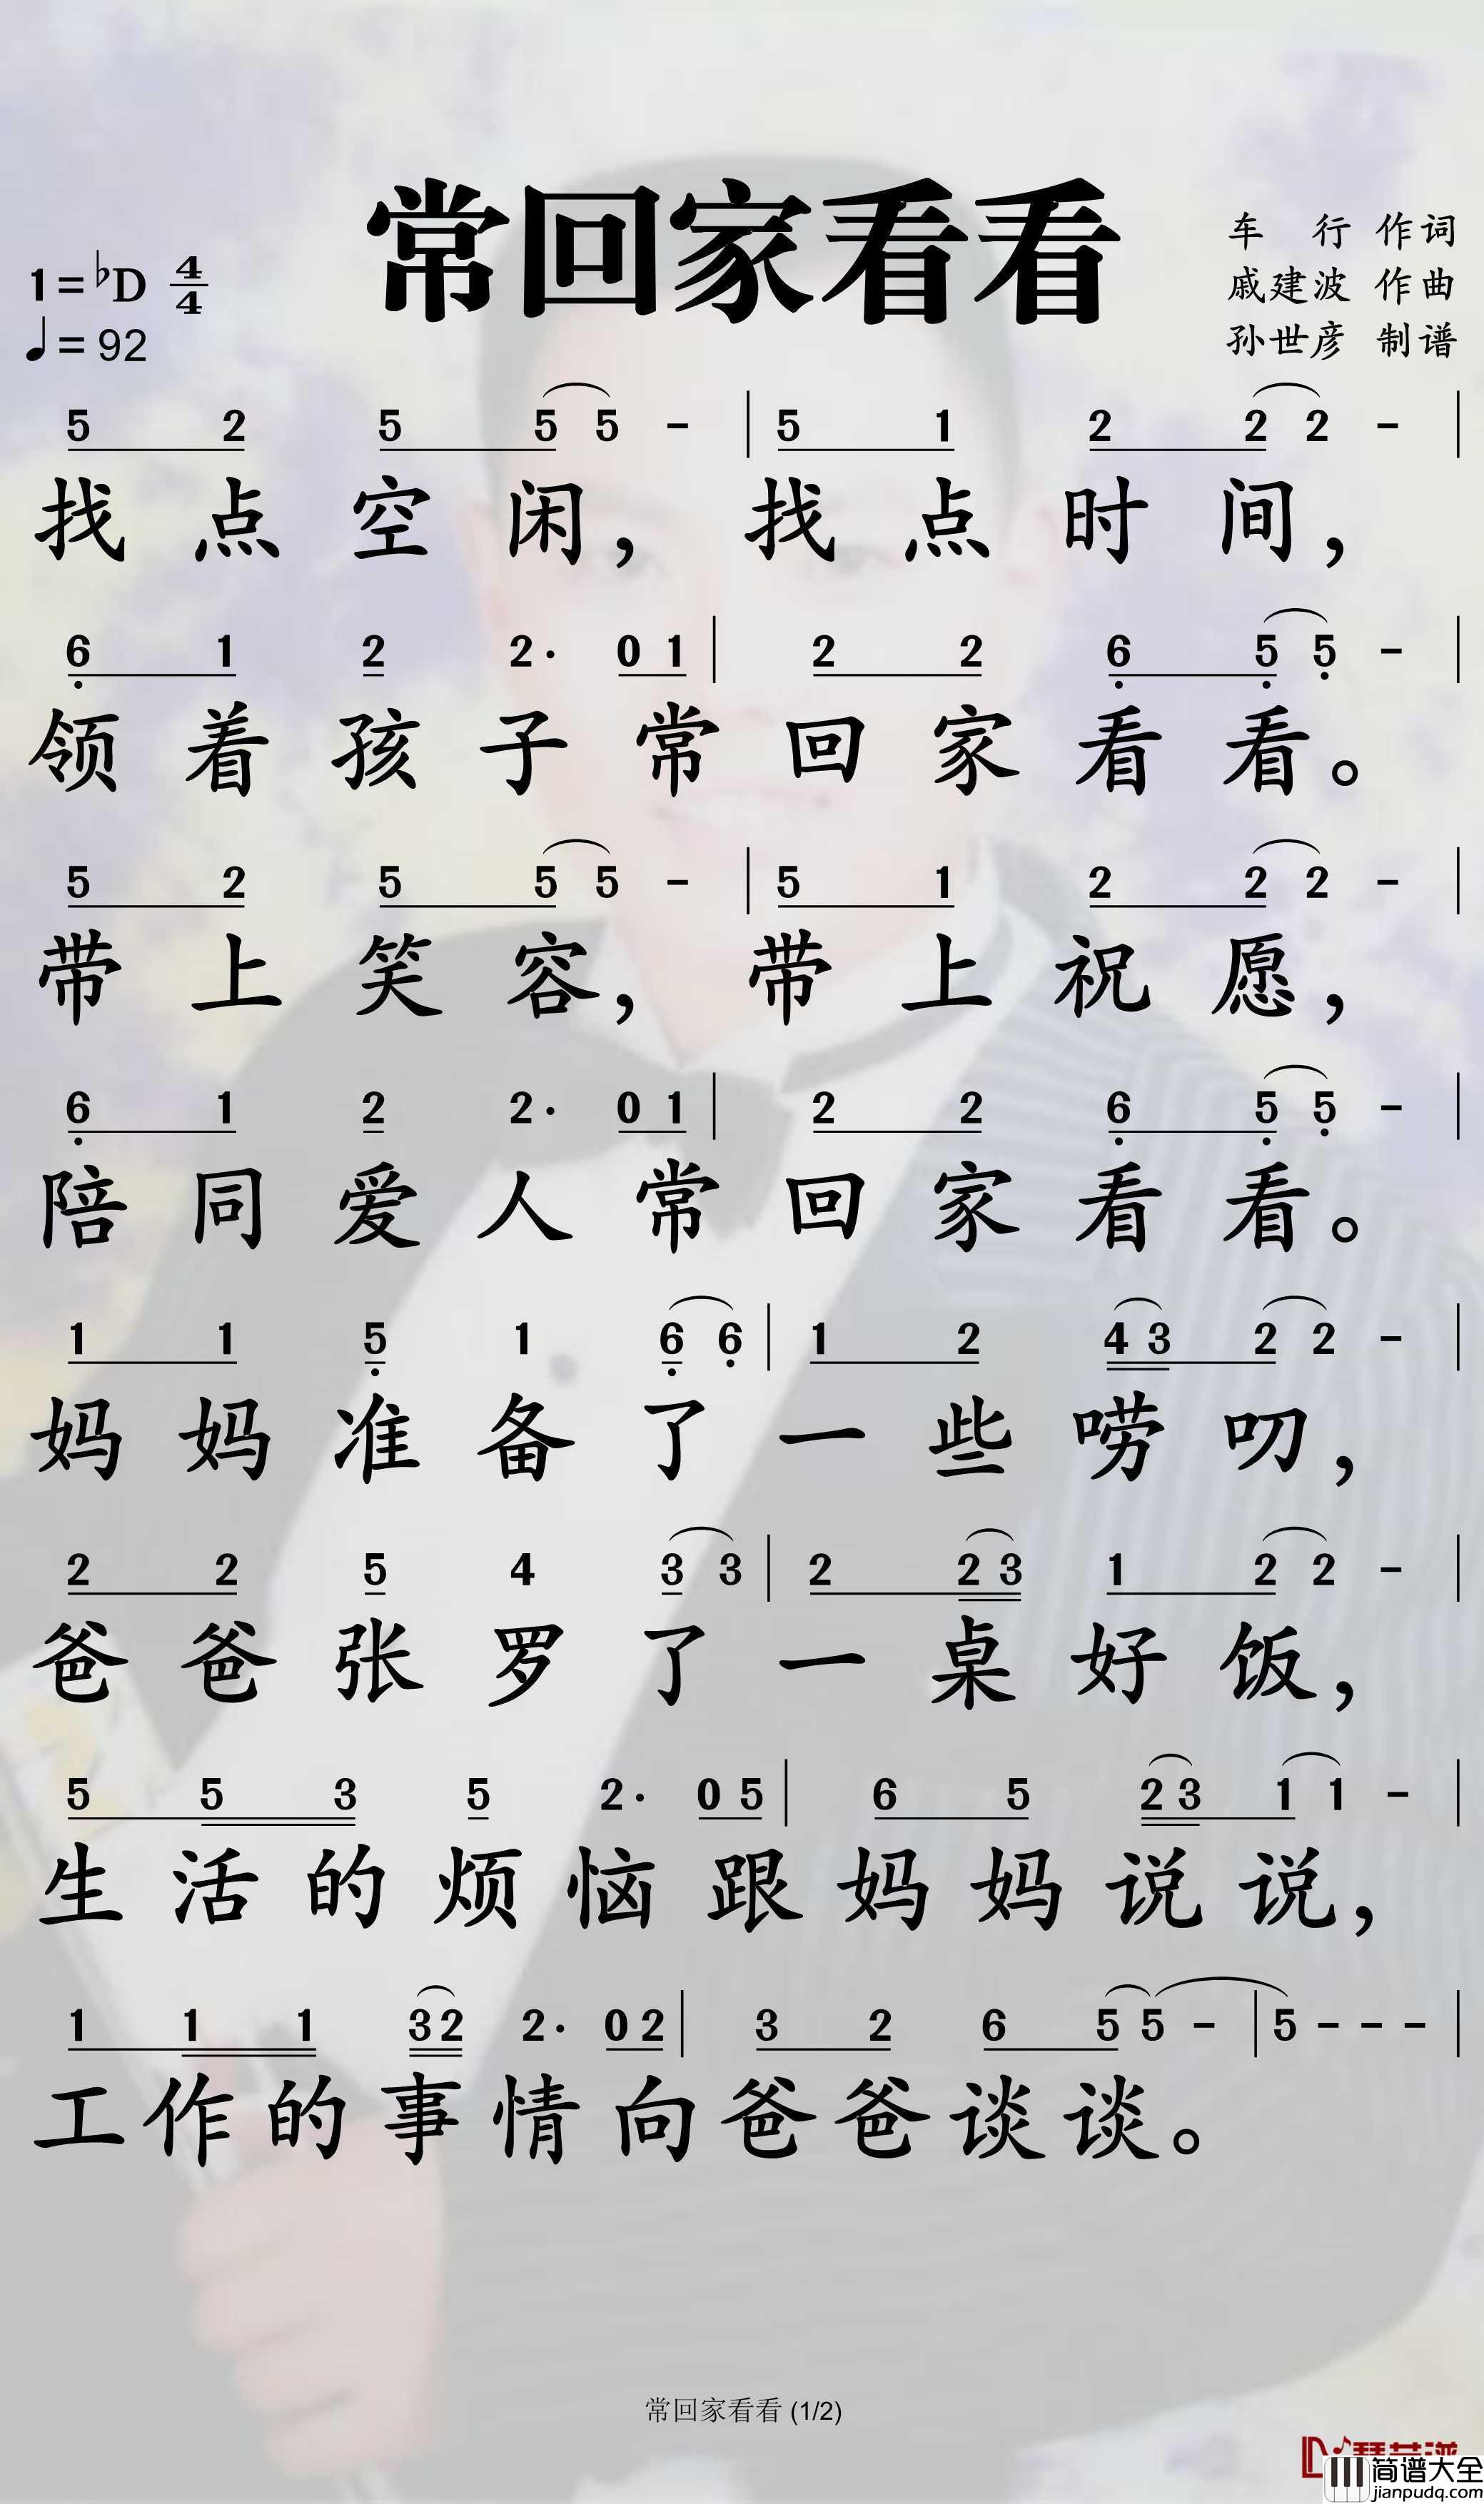 常回家看看
车 行 作词
戚建波 作曲
孙世彦 制谱
1=♭D 4/4
♩=92
5 2 5 5 5 - | 5 1 2 2 2 - |
找点空闲，找点时间，
6̣ 1 2 2· 0 1 | 2 2 6̣ 5̣ 5̣ - |
领着孩子常回家看看。
5 2 5 5 5 - | 5 1 2 2 2 - |
带上笑容，带上祝愿，
6̣ 1 2 2· 0 1 | 2 2 6̣ 5̣ 5̣ - |
陪同爱人常回家看看。
1 1 5̣ 1 6̣ 6̣ | 1 2 4 3 2 2 - |
妈妈准备了一些唠叨，
2 2 5 4 3 3 | 2 2 3 1 2 2 - |
爸爸张罗了一桌好饭，
5 5 3 5 2· 0 5 | 6 5 2 3 1 1 - |
生活的烦恼跟妈妈说说，
1 1 1 3 2 2· 0 2 | 3 2 6 5 5 - | 5 - - - |
工作的事情向爸爸谈谈。
常回家看看 (1/2)
简谱大全
jianpudq.com